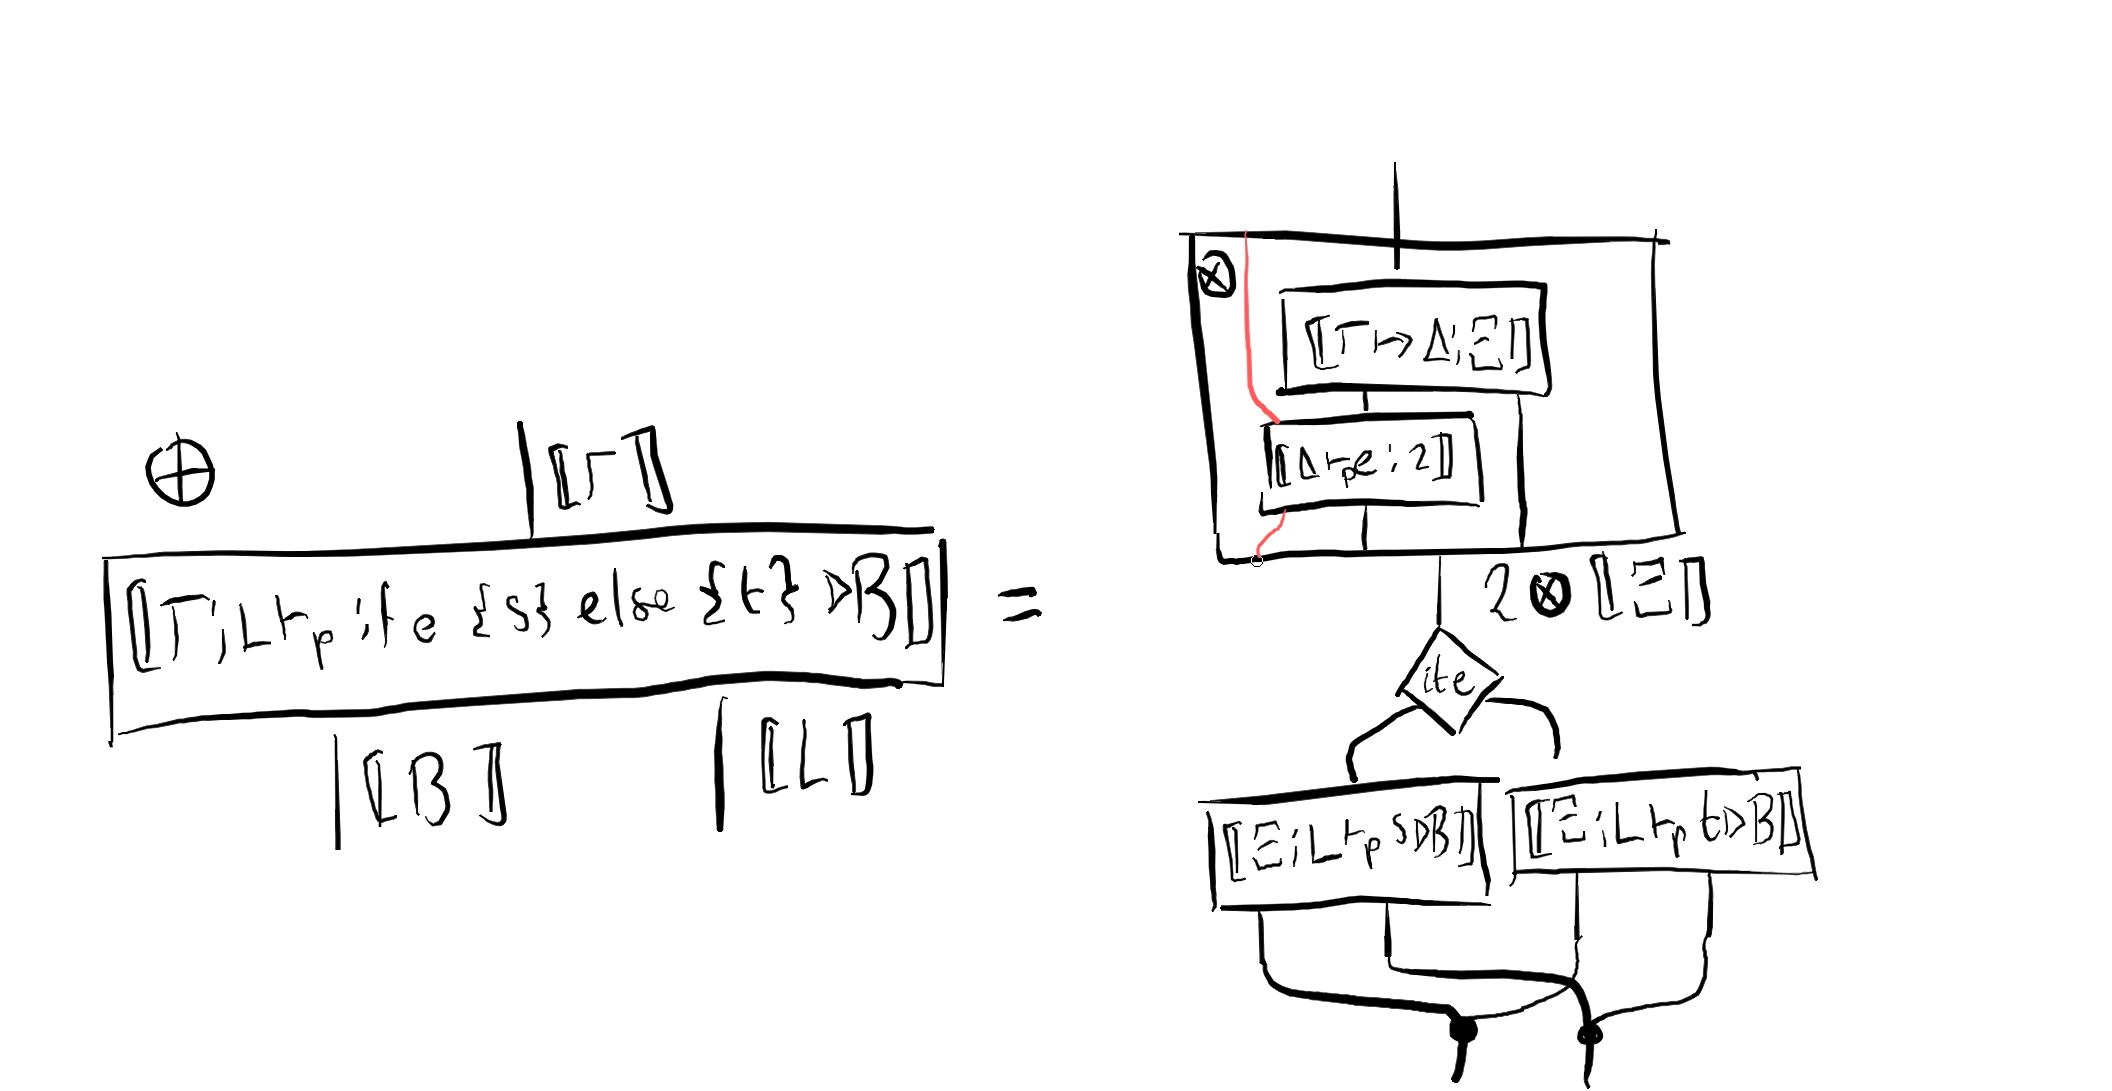 ⊕
⟦Γ⟧
⟦Γ;L ⊢ₚ ite {s} else {t} ▷ B⟧
=
⟦B⟧
⟦L⟧
⊗
⟦Γ ↦ Δ;Ξ⟧
⟦Δ ⊢ₚ e : 2⟧
2 ⊗ ⟦Ξ⟧
ite
⟦Ξ;L ⊢ₚ s ▷ B⟧
⟦Ξ;L ⊢ₚ t ▷ B⟧